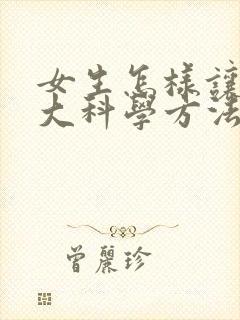 女生怎樣讓
大科學方法
曾麗珍